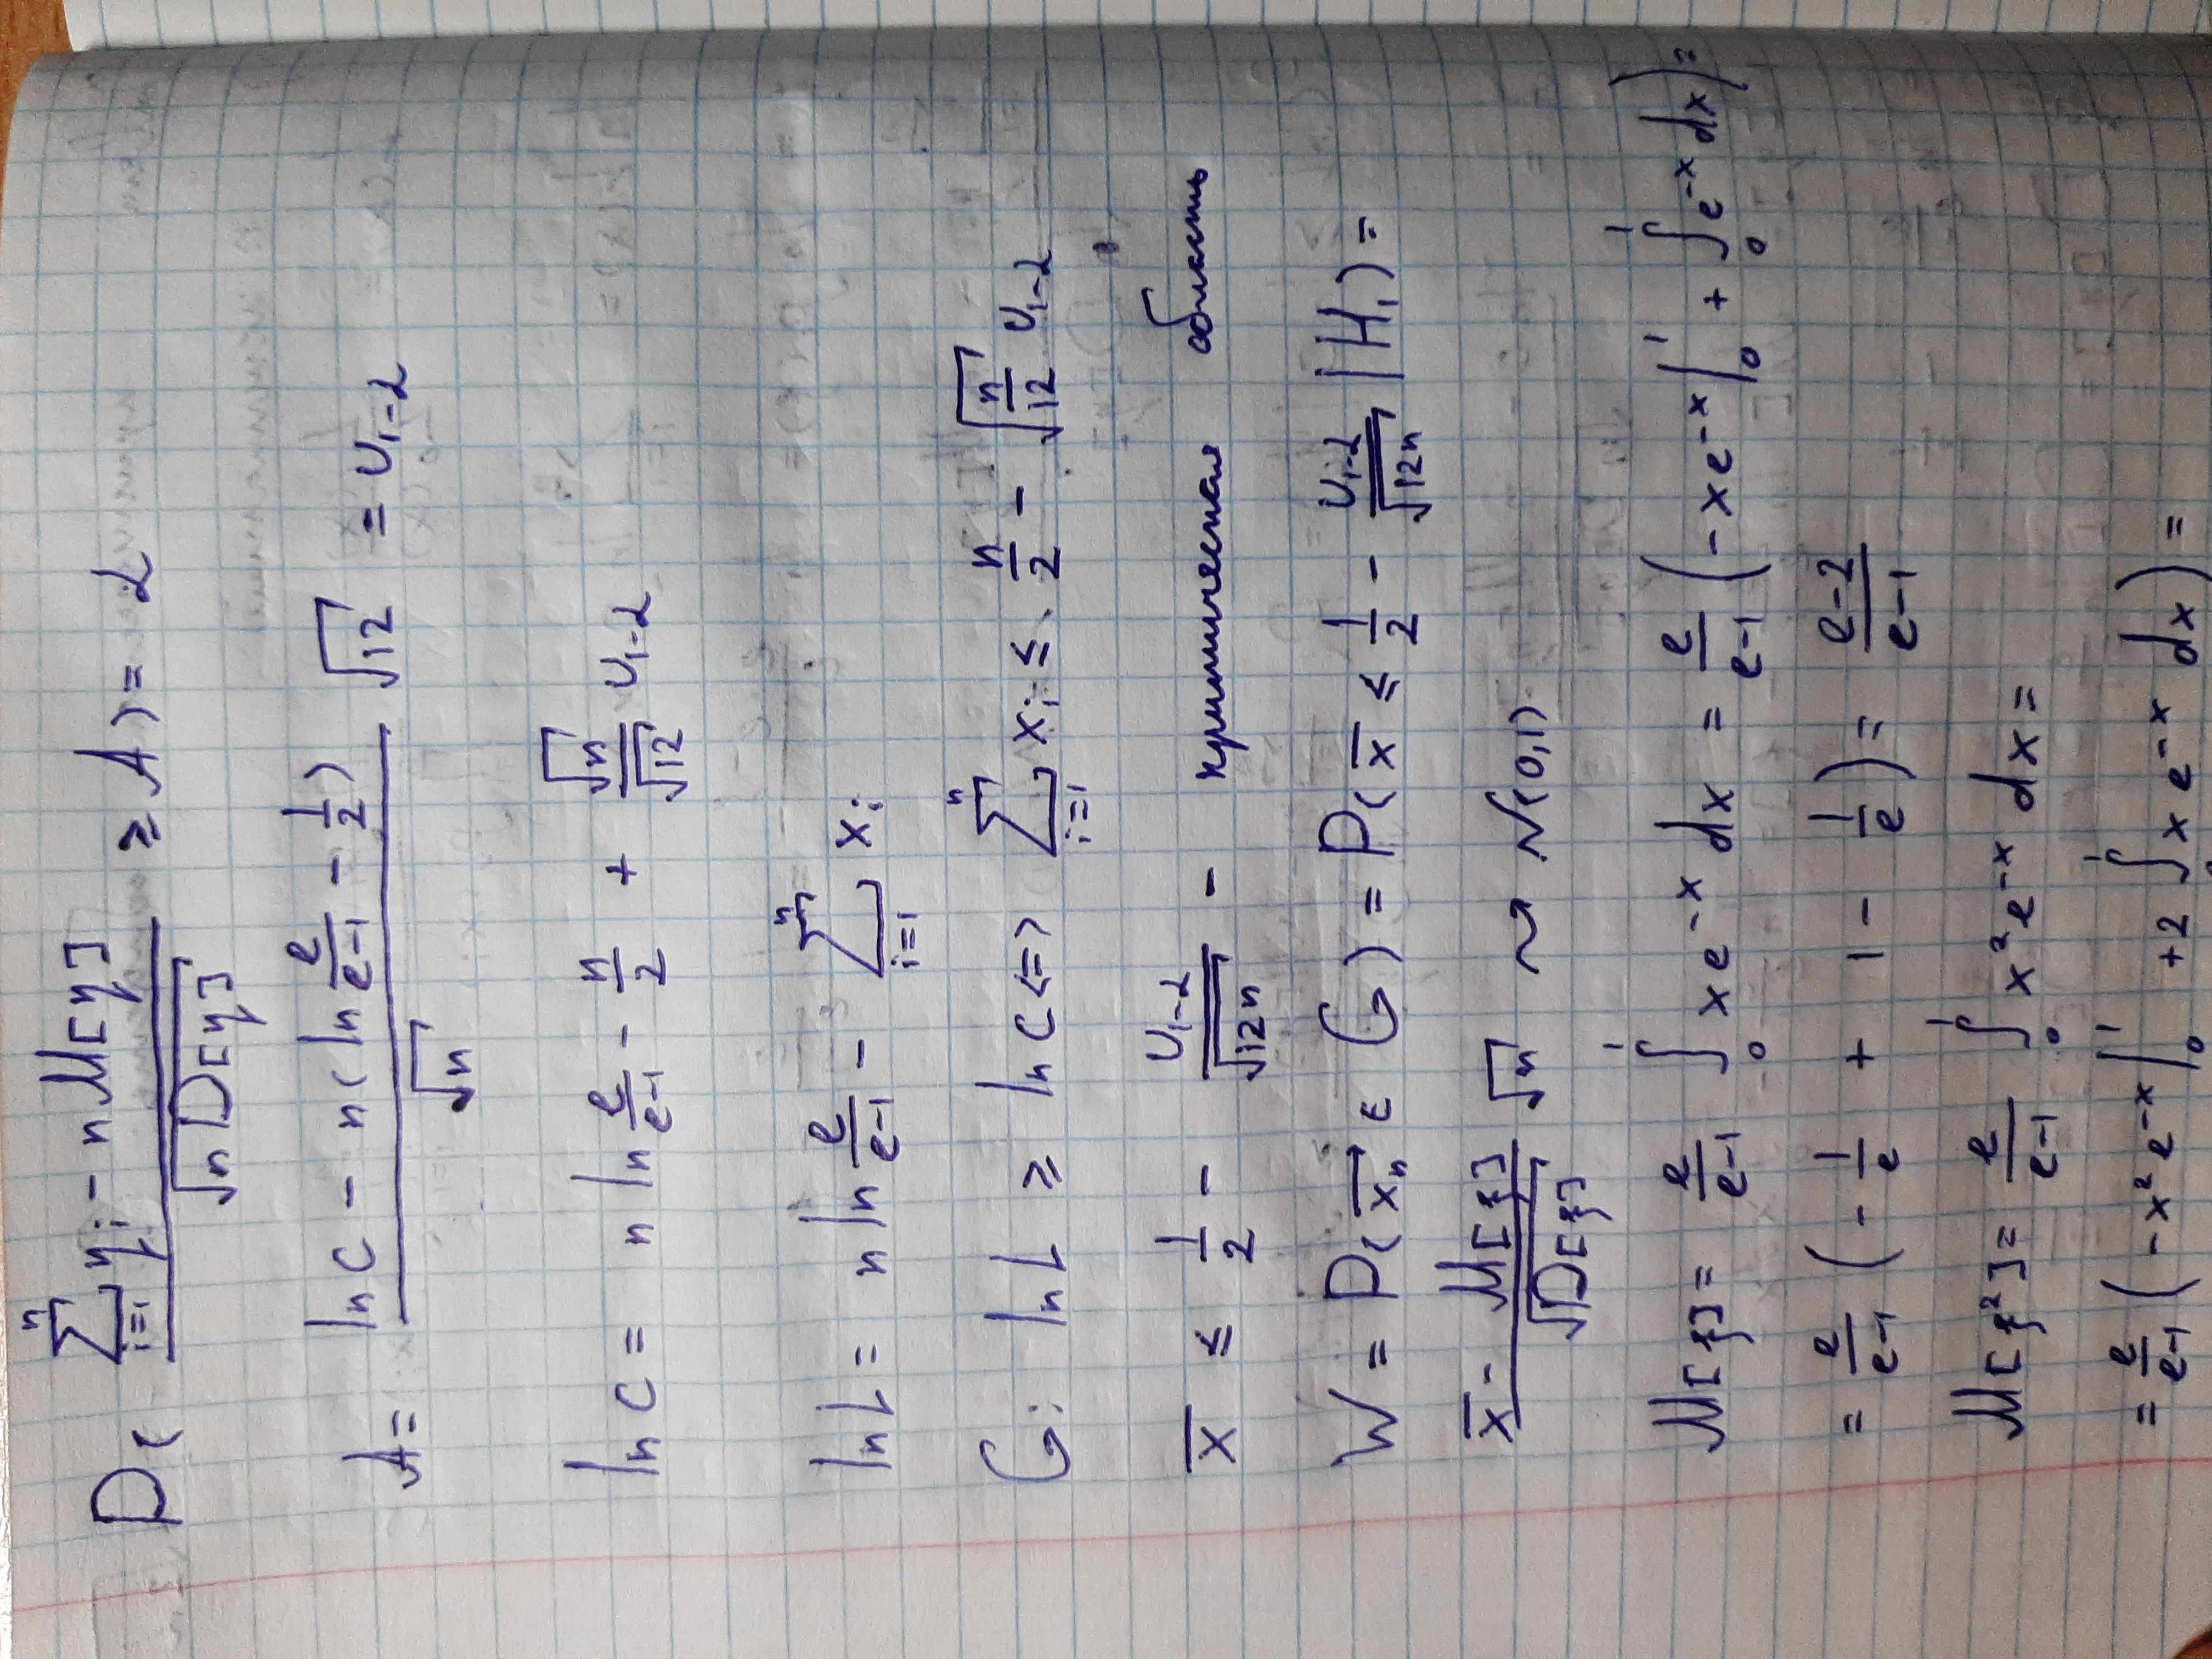 P( (∑_{i=1}^{n} η_i - n M[η]) / √(n D[η]) ≥ A) = α
A = (ln c - n(ln e/(e-1) - 1/2)) / √n √12 = U_{1-α}
ln c = n ln e/(e-1) - n/2 + √n/√12 U_{1-α}
ln L = n ln e/(e-1) - ∑_{i=1}^{n} x_i
G: ln L ≥ ln c <=> ∑_{i=1}^{n} x_i ≤ n/2 - √(n/12) U_{1-α}
x̄ ≤ 1/2 - U_{1-α}/√(12n) - критическая область
W = P(x⃗_n ∈ G) = P(x̄ ≤ 1/2 - U_{1-α}/√(12n) | H_1) =
(x̄ - M[ξ]) / √(D[ξ]) √n ⇝ N(0,1)
M[ξ] = e/(e-1) ∫_0^1 x e^{-x} dx = e/(e-1) (-x e^{-x} |_0^1 + ∫_0^1 e^{-x} dx) =
= e/(e-1) (- 1/e + 1 - 1/e) = (e-2)/(e-1)
M[ξ²] = e/(e-1) ∫_0^1 x² e^{-x} dx =
= e/(e-1) (-x² e^{-x} |_0^1 + 2 ∫^1 x e^{-x} dx) =